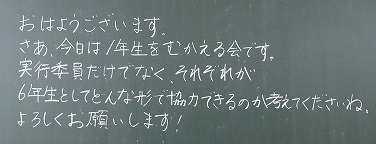 おはようございます。
さあ、今日は1年生をむかえる会です。
実行委員だけでなく、それぞれが
6年生としてどんな形で協力できるのか考えてくださいね。
よろしくお願いします!